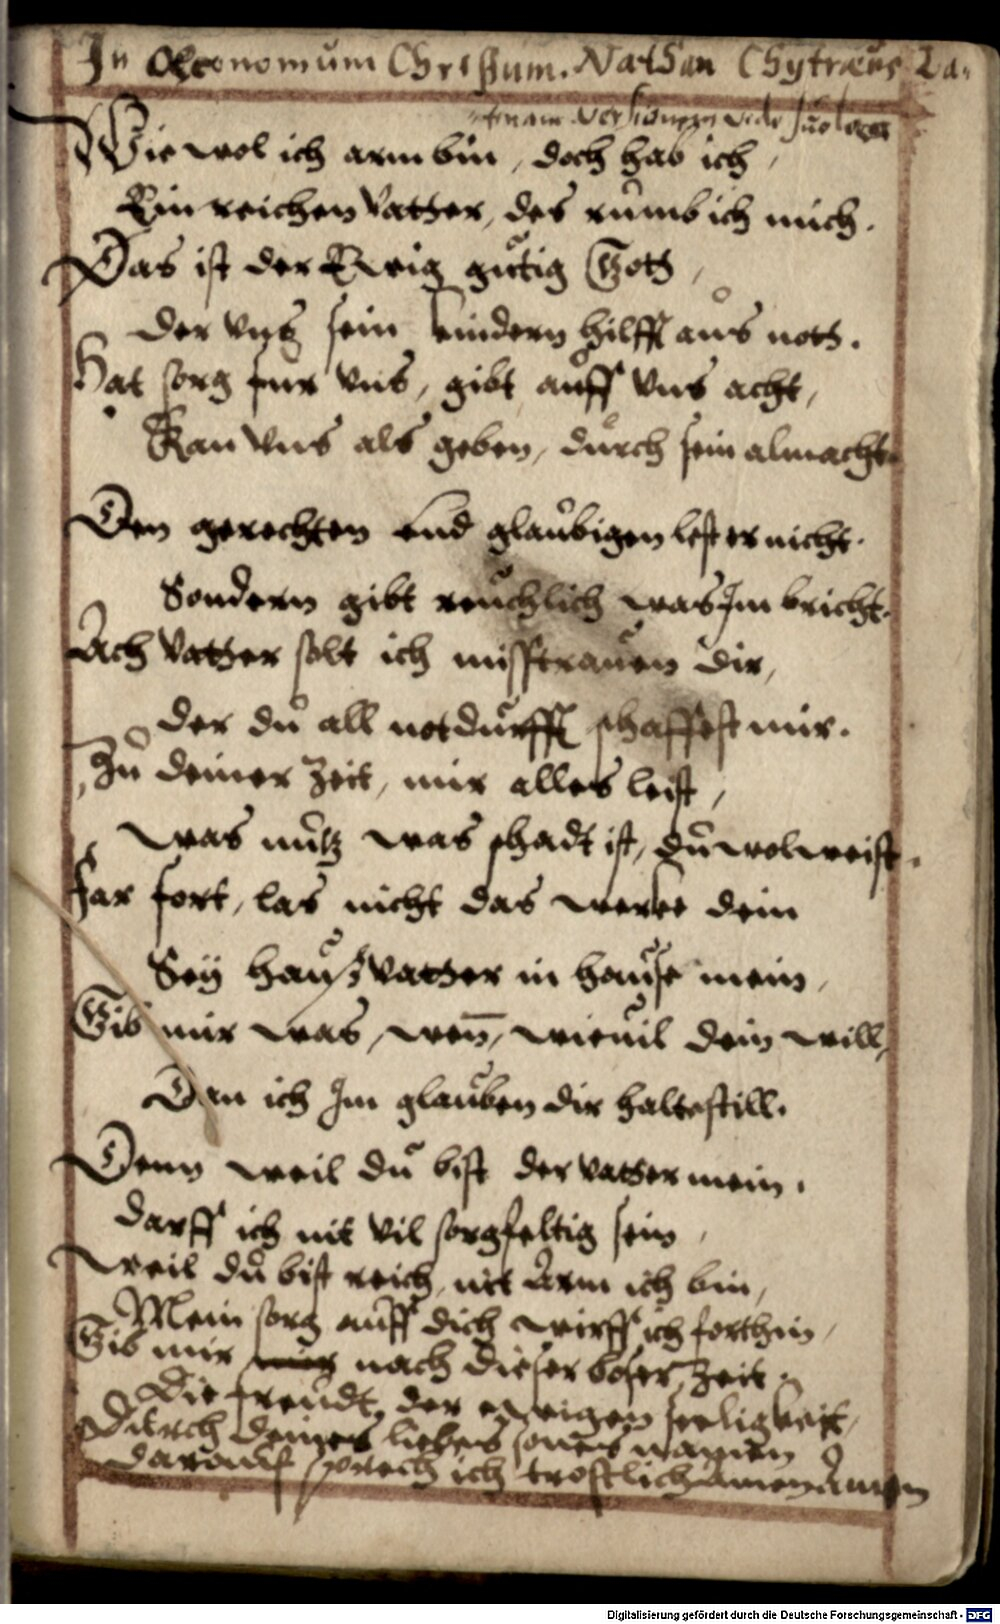 In Oeconomum Christum. Nathan Chytraeus La-
tinam versionem vide suo loco
Wie wol ich arm bin, doch hab ich,
Ein reichen Vatter, des růmb ich mich.
Das ist der Ewig gůtig Gott,
der vns sein kindern hilfft aůs nott.
Hat sorg fur vns, gibt aůff vns acht,
Kan vns als geben, důrch sein almacht.
Den gerechten vnd glaůbigen lest er nicht.
Sondern gibt reůchlich was Im bricht.
Ach Vatter solt ich misstraůen dir,
der dů all notdůrfft schaffest mir.
Zů deiner Zeit, mir alles leist,
was nůtz was schadt ist, dů wol weist.
Far fort, las nicht das werke dein
Seÿ haůs Vatter in haůse mein,
Gib mir was, wen̄, wieůil dein will,
Dan ich Im glaůben dir halte still.
Denn weil dů bist der vatter mein,
darff ich nit vil sorgfeltig sein,
weil dů bist reich, nit Arm ich bin,
Mein sorg aůff dich wirff ich forthin,
Gib mir nach dieser boser Zeit.
Die freůdt, der ewigen seeligkeit,
Důrch deines liebes sones namen
daraůf sprech ich trostlich Amen Amen
Digitalisierung gefördert durch die Deutsche Forschungsgemeinschaft - DFG